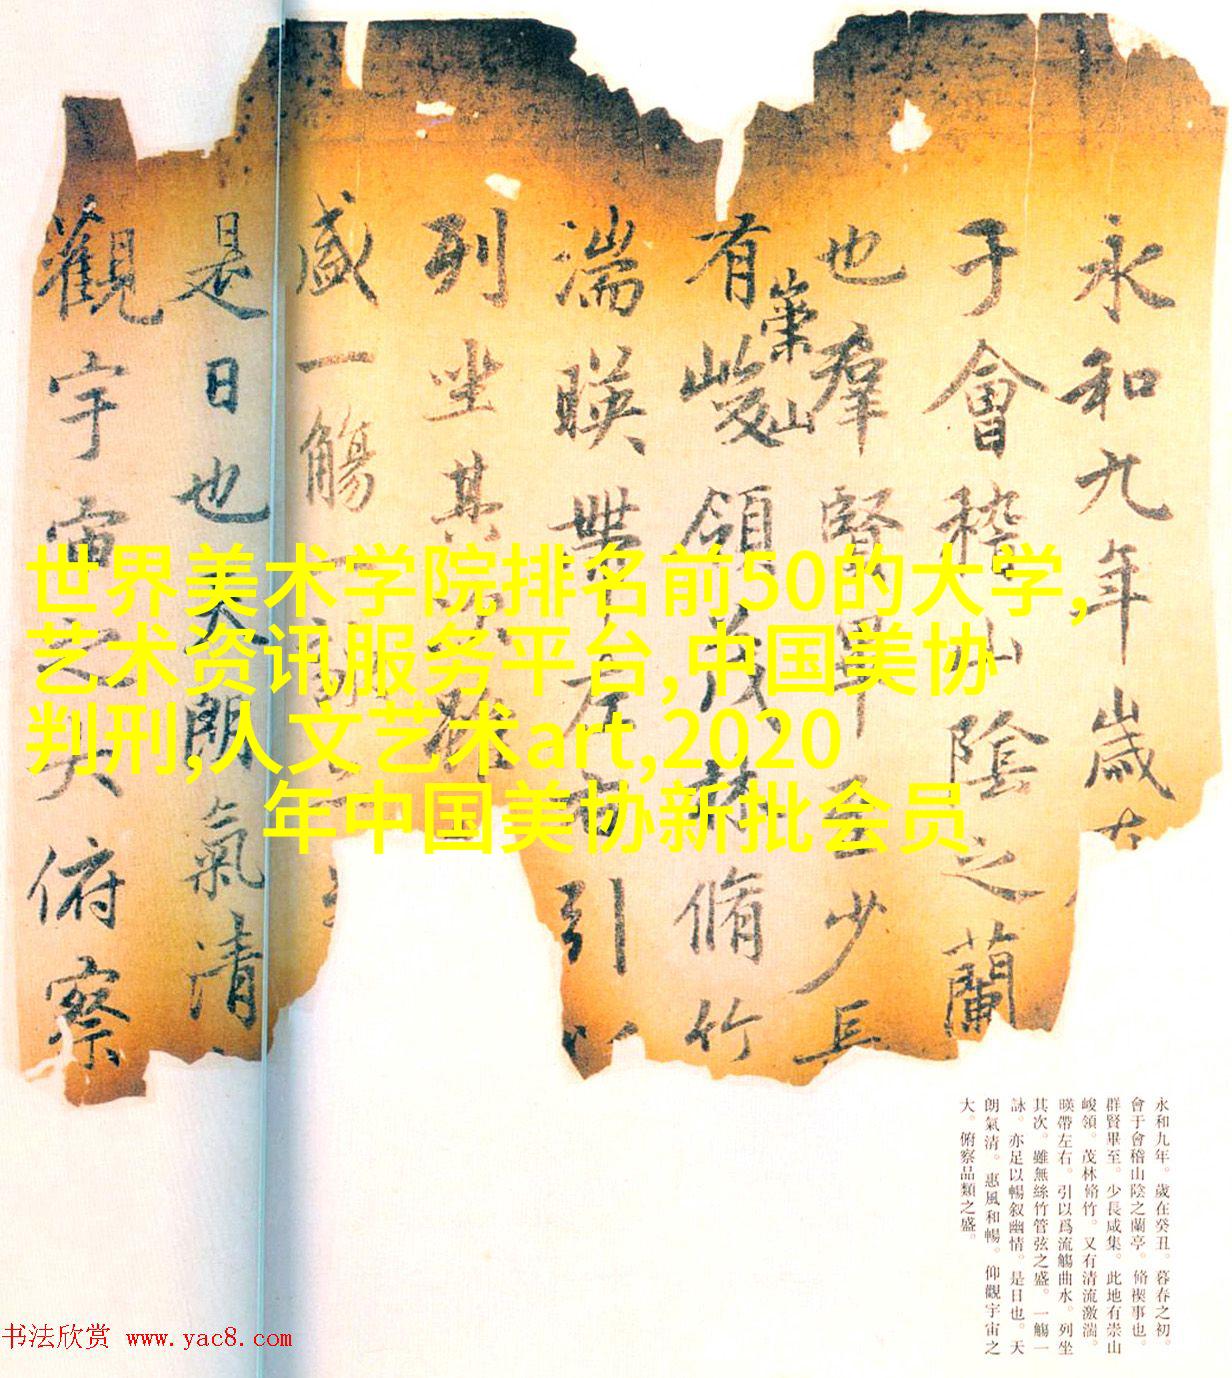 永和九年歲在
于會稽山陰之蘭
也羣賢畢至少長
有崇山峻領茂林脩竹
湍暎帶左右引以
列坐其次雖
盛一觴一詠
是日也天朗氣清
觀宇宙之大俯察
世界美术学院排名前50的大学,
艺术资讯服务平台,中国美协
判刑,人文艺术art,2020
年中国美协新批会员
永和九年。歲在癸丑。暮春之初。
會于會稽山陰之蘭亭。脩禊事也。
群賢畢至。少長咸集。此地有崇山
峻領。茂林脩竹。又有清流激湍。
暎帶左右。引以爲流觴曲水。列坐
其次。雖無絲竹管弦之盛。一觴一
詠。亦足以暢叙幽情。是日也。天
朗氣清。惠風和暢。仰觀宇宙之
大。俯察品類之盛。
书法欣赏 www.yac8.com